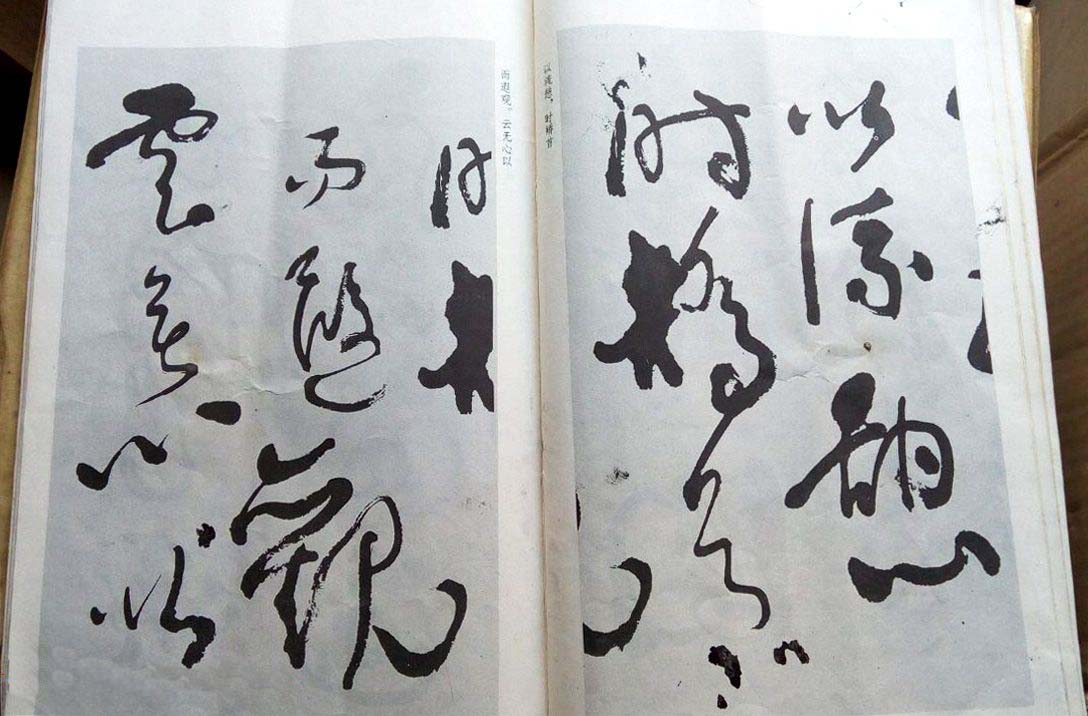 以流憩
時矯首
以流憩，时矫首
而遐观。云无心以
而遐觀
雲無心以